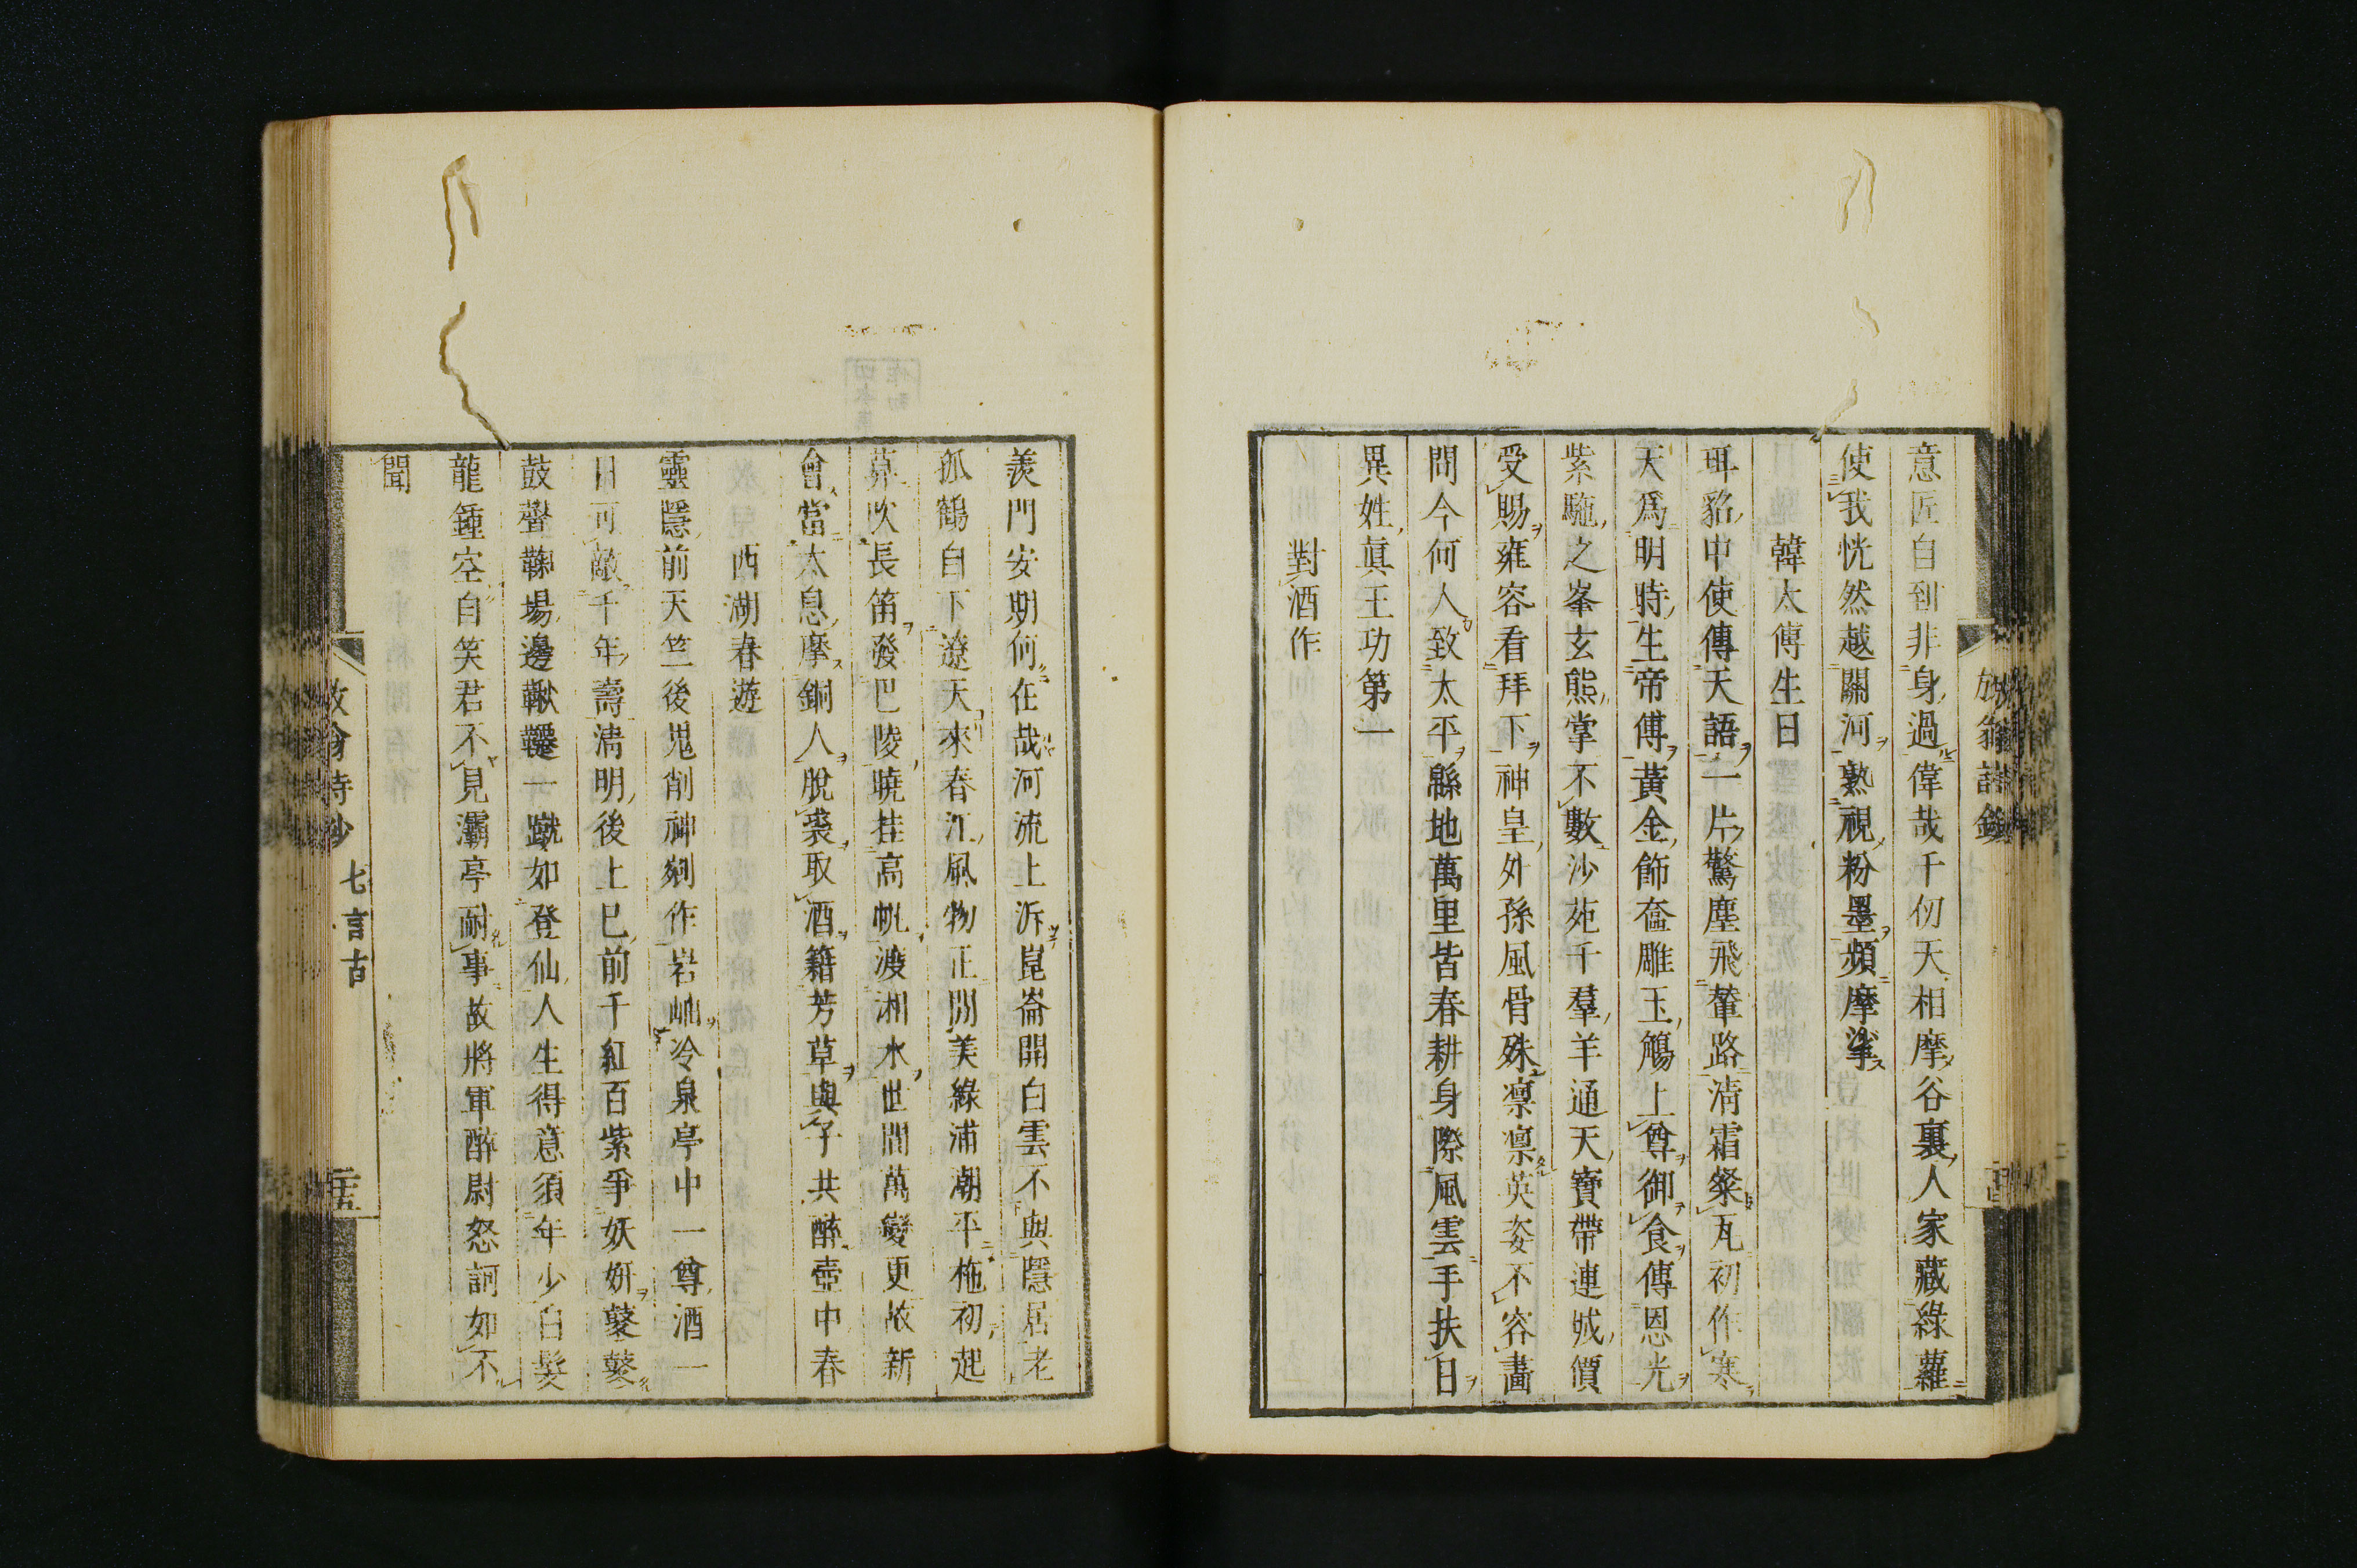 意匠自到非身過偉哉千仞天相摩谷裏人家藏綠蘿
使我恍然越關河熟視粉墨頻摩挲
韓太傅生日
珥貂中使傳天語一片驚塵飛輦路清霜粲瓦初作寒
天爲明時生帝傅黃金飾奩雕玉觴上尊御食傳恩光
紫駞之峯玄熊掌不數沙苑千羣羊通天寶帶連城價
受賜雍容看拜下神皇外孫風骨殊凛凛英姿不容畫
問今何人致太平緜地萬里皆春耕身際風雲手扶日
異姓眞王功第一
對酒作
羨門安期何在哉河流上泝崑崙開白雲不與隱居老
孤鶴自下遼天來春江風物正閒美綠浦潮平柂初起
草吹長笛發巴陵曉挂高帆渡湘水世間萬變更故新
會當太息摩銅人脫裘取酒籍芳草與子共醉壺中春
西湖春遊
靈隱前天竺後鬼削神剜作岩岫冷泉亭中一尊酒一
日可敵千年壽淸明後上巳前千紅百紫爭妖妍鼕鼕
鼓聲鞠場邊鞦韆一蹴如登仙人生得意須年少白髮
龍鍾空自笑君不見灞亭耐事故將軍醉尉怒訶如不
聞
放翁詩鈔
七言古
二十五